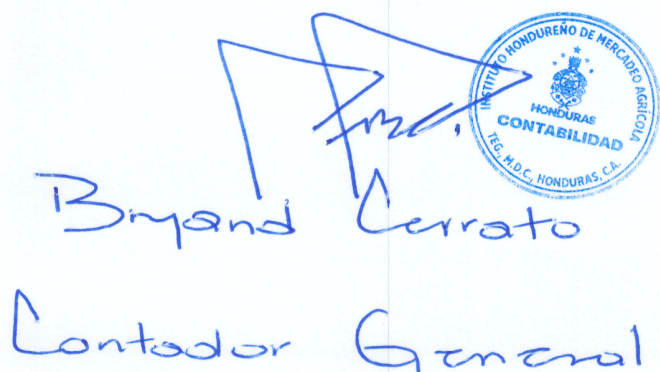 INSTITUTO HONDUREÑO DE MERCADEO AGRÍCOLA
HONDURAS
CONTABILIDAD
TEG., M.D.C., HONDURAS, C.A.
Bryand Cerrato
Contador General